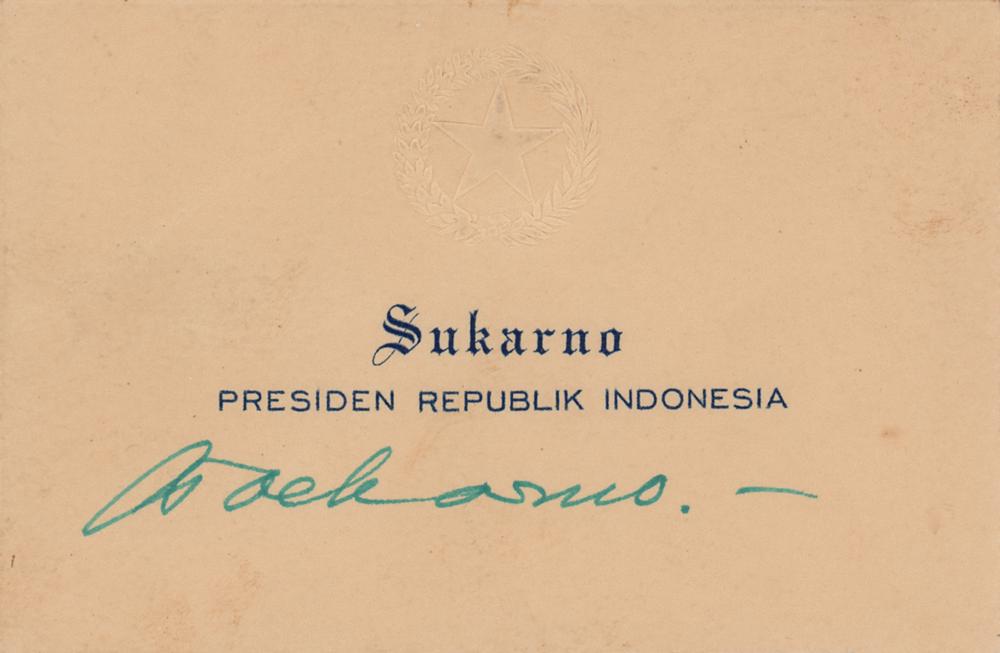 Sukarno
PRESIDEN REPUBLIK INDONESIA
Soekarno. —